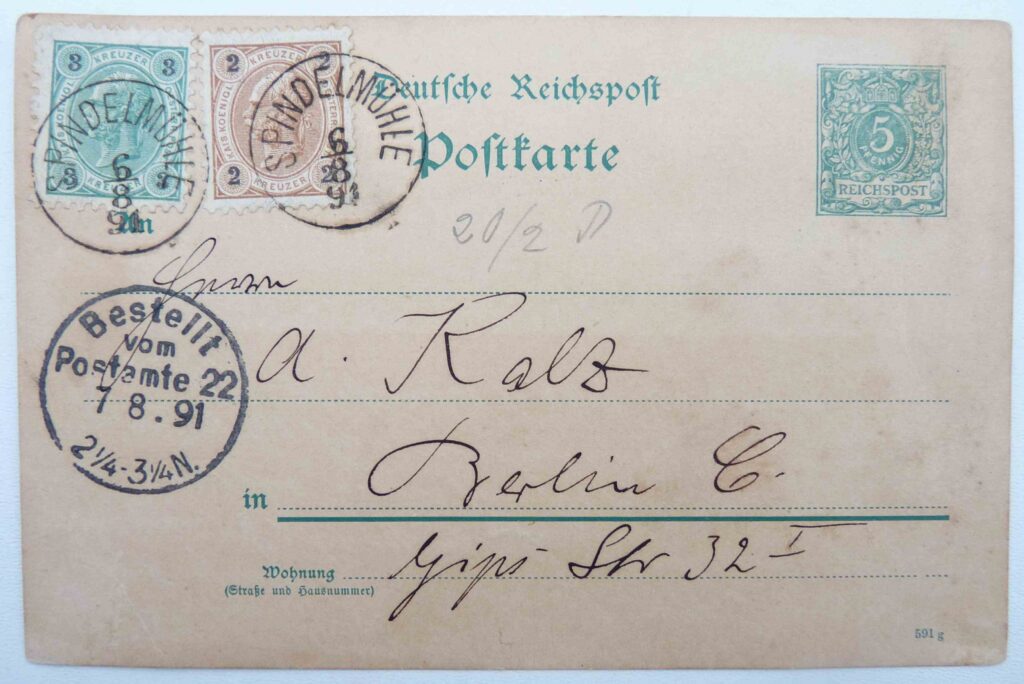 3 KREUZER 3
3 KREUZER 3
2 KREUZER 2
2 KREUZER 2
SPINDELMÜHLE
6
8
91
SPINDELMÜHLE
6
8
91
Deutsche Reichspost
Postkarte
5
PFENNIG
REICHSPOST
An
20/2
Herrn
A. Kalz
Bestellt
vom
Postamte 22
7 8.91
2¼-3¼N.
in Berlin C.
Gips Str 32 I
Wohnung
(Straße und Hausnummer)
591 g